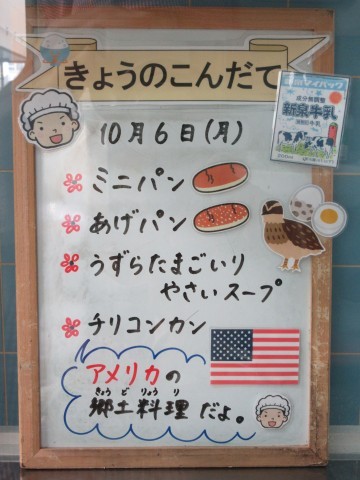 きょうのこんだて
10月6日(月)
ミニパン
あげパン
うずらたまごいり
やさいスープ
チリコンカン
アメリカの
郷土料理だよ。
きょうどりょうり
成分無調整
新泉牛乳